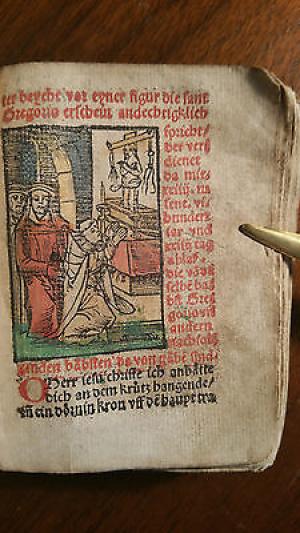 ter beycht vor eyner figur die sant
Gregorio erschein andechtigklich
spricht/
der verß
dienet
da mit
xxiiij. m
sent. vi
hundert
iar vnd
xxiiij tag
ablas.
die võ dẽ
selbẽ bas
bst Greg
gorio vñ
andern
nachfolg
genden bäbsten da von gäbẽ sind.
O Herr iesu christe ich anbätte
dich an dem krütz hangende/
vñ ein dörnin kron vff dẽ haupt tra